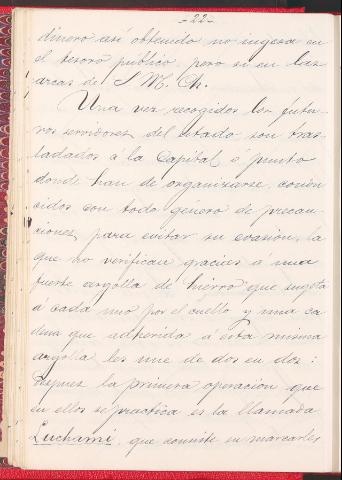 - 22 -
dinero asi obtenido no ingresa en
el tesoro público, pero si en las
arcas de S. M. Ch.
Una vez recogidos los futu-
ros servidores del estado son tras-
ladados á la Capital ó punto
donde han de organizarse, condu
cidos con todo género de precau-
ciones, para evitar su evasión, la
que no verifican gracias á una
fuerte argolla de hierro que sugeta
á cada uno por el cuello y una ca
dena que adherida á esta misma
argolla les une de dos en dos:
despues la primera operación que
en ellos se practica es la llamada
Luchami, que consiste en marcarles